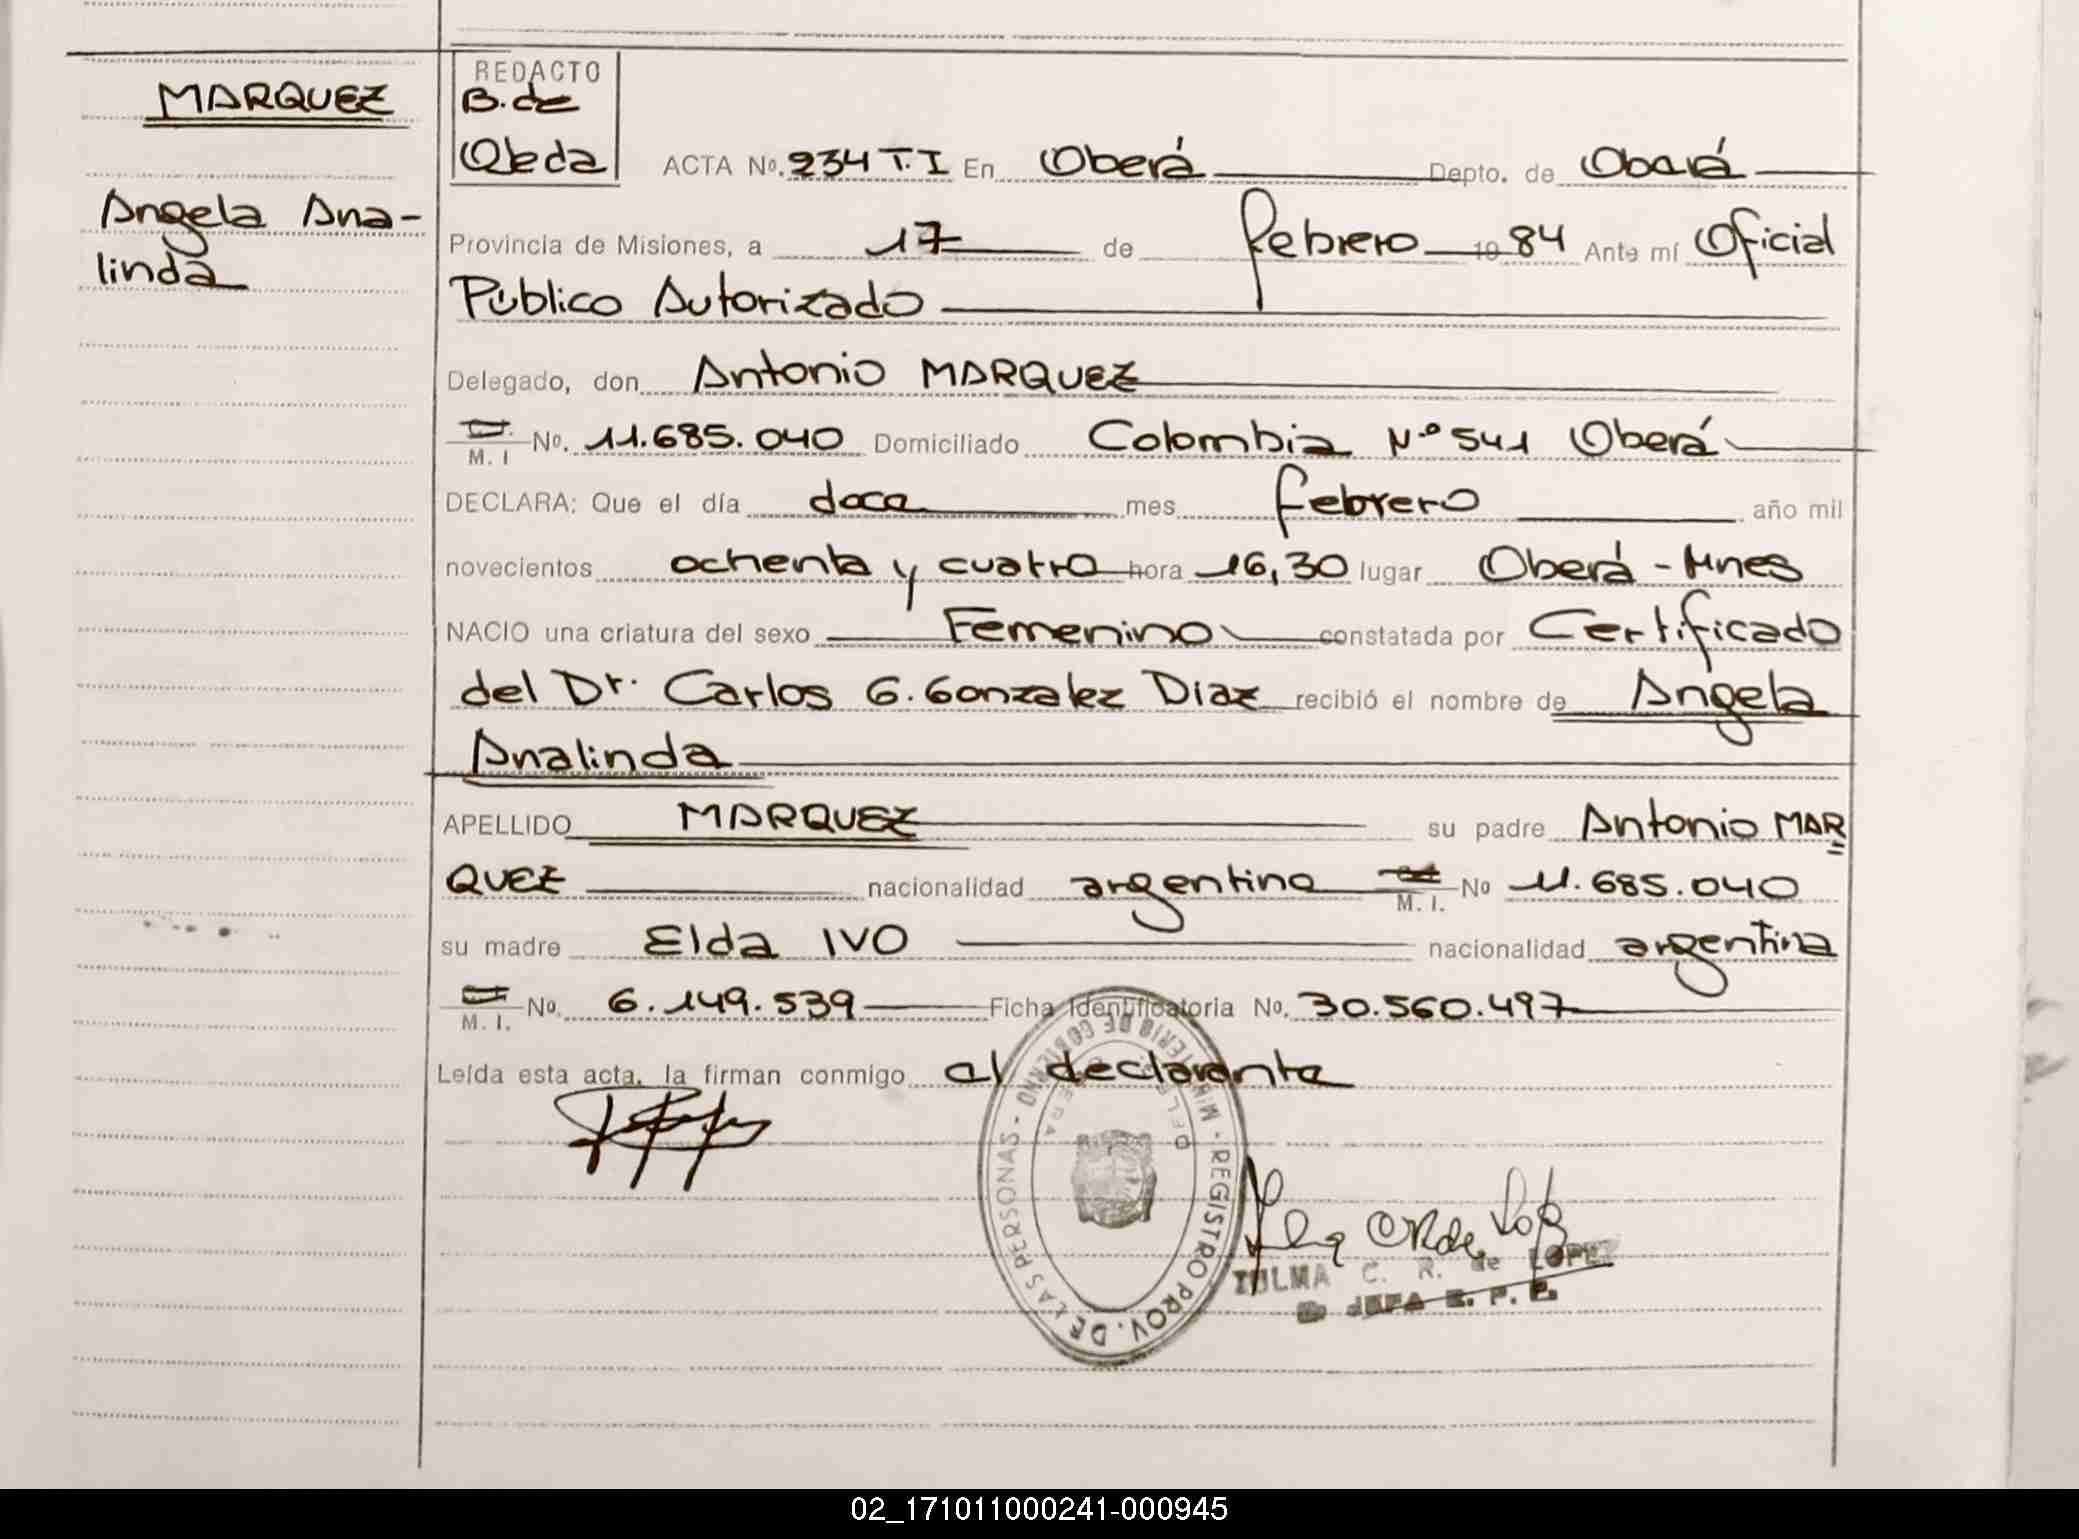 MARQUEZ
Angela Ana-
linda
REDACTO
B. de
Ojeda
ACTA Nº. 234 T.I En Oberá Depto. de Oberá
Provincia de Misiones, a 17 de febrero 1984 Ante mí Oficial
Público Autorizado
Delegado, don Antonio MARQUEZ
M. I No. 11.685.040 Domiciliado Colombia Nº 541 Oberá
DECLARA: Que el día doce mes febrero año mil
novecientos ochenta y cuatro hora 16,30 lugar Oberá - Mnes
NACIO una criatura del sexo Femenino constatada por Certificado
del Dr. Carlos G. Gonzalez Diaz recibió el nombre de Angela
Analinda
APELLIDO MARQUEZ su padre Antonio MAR
QUEZ nacionalidad argentina M. I. No 11.685.040
su madre Elda IVO nacionalidad argentina
M. I. No. 6.149.539 Ficha Identificatoria No. 30.560.497
Leída esta acta, la firman conmigo el declarante
MINISTERIO DE GOBIERNO - REGISTRO PROV. DE LAS PERSONAS -
C. R. de LOPEZ
JEFA
02_171011000241-000945